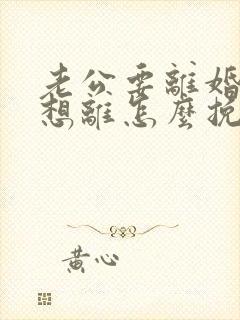 老公要離婚
想離怎麼挽
黃心